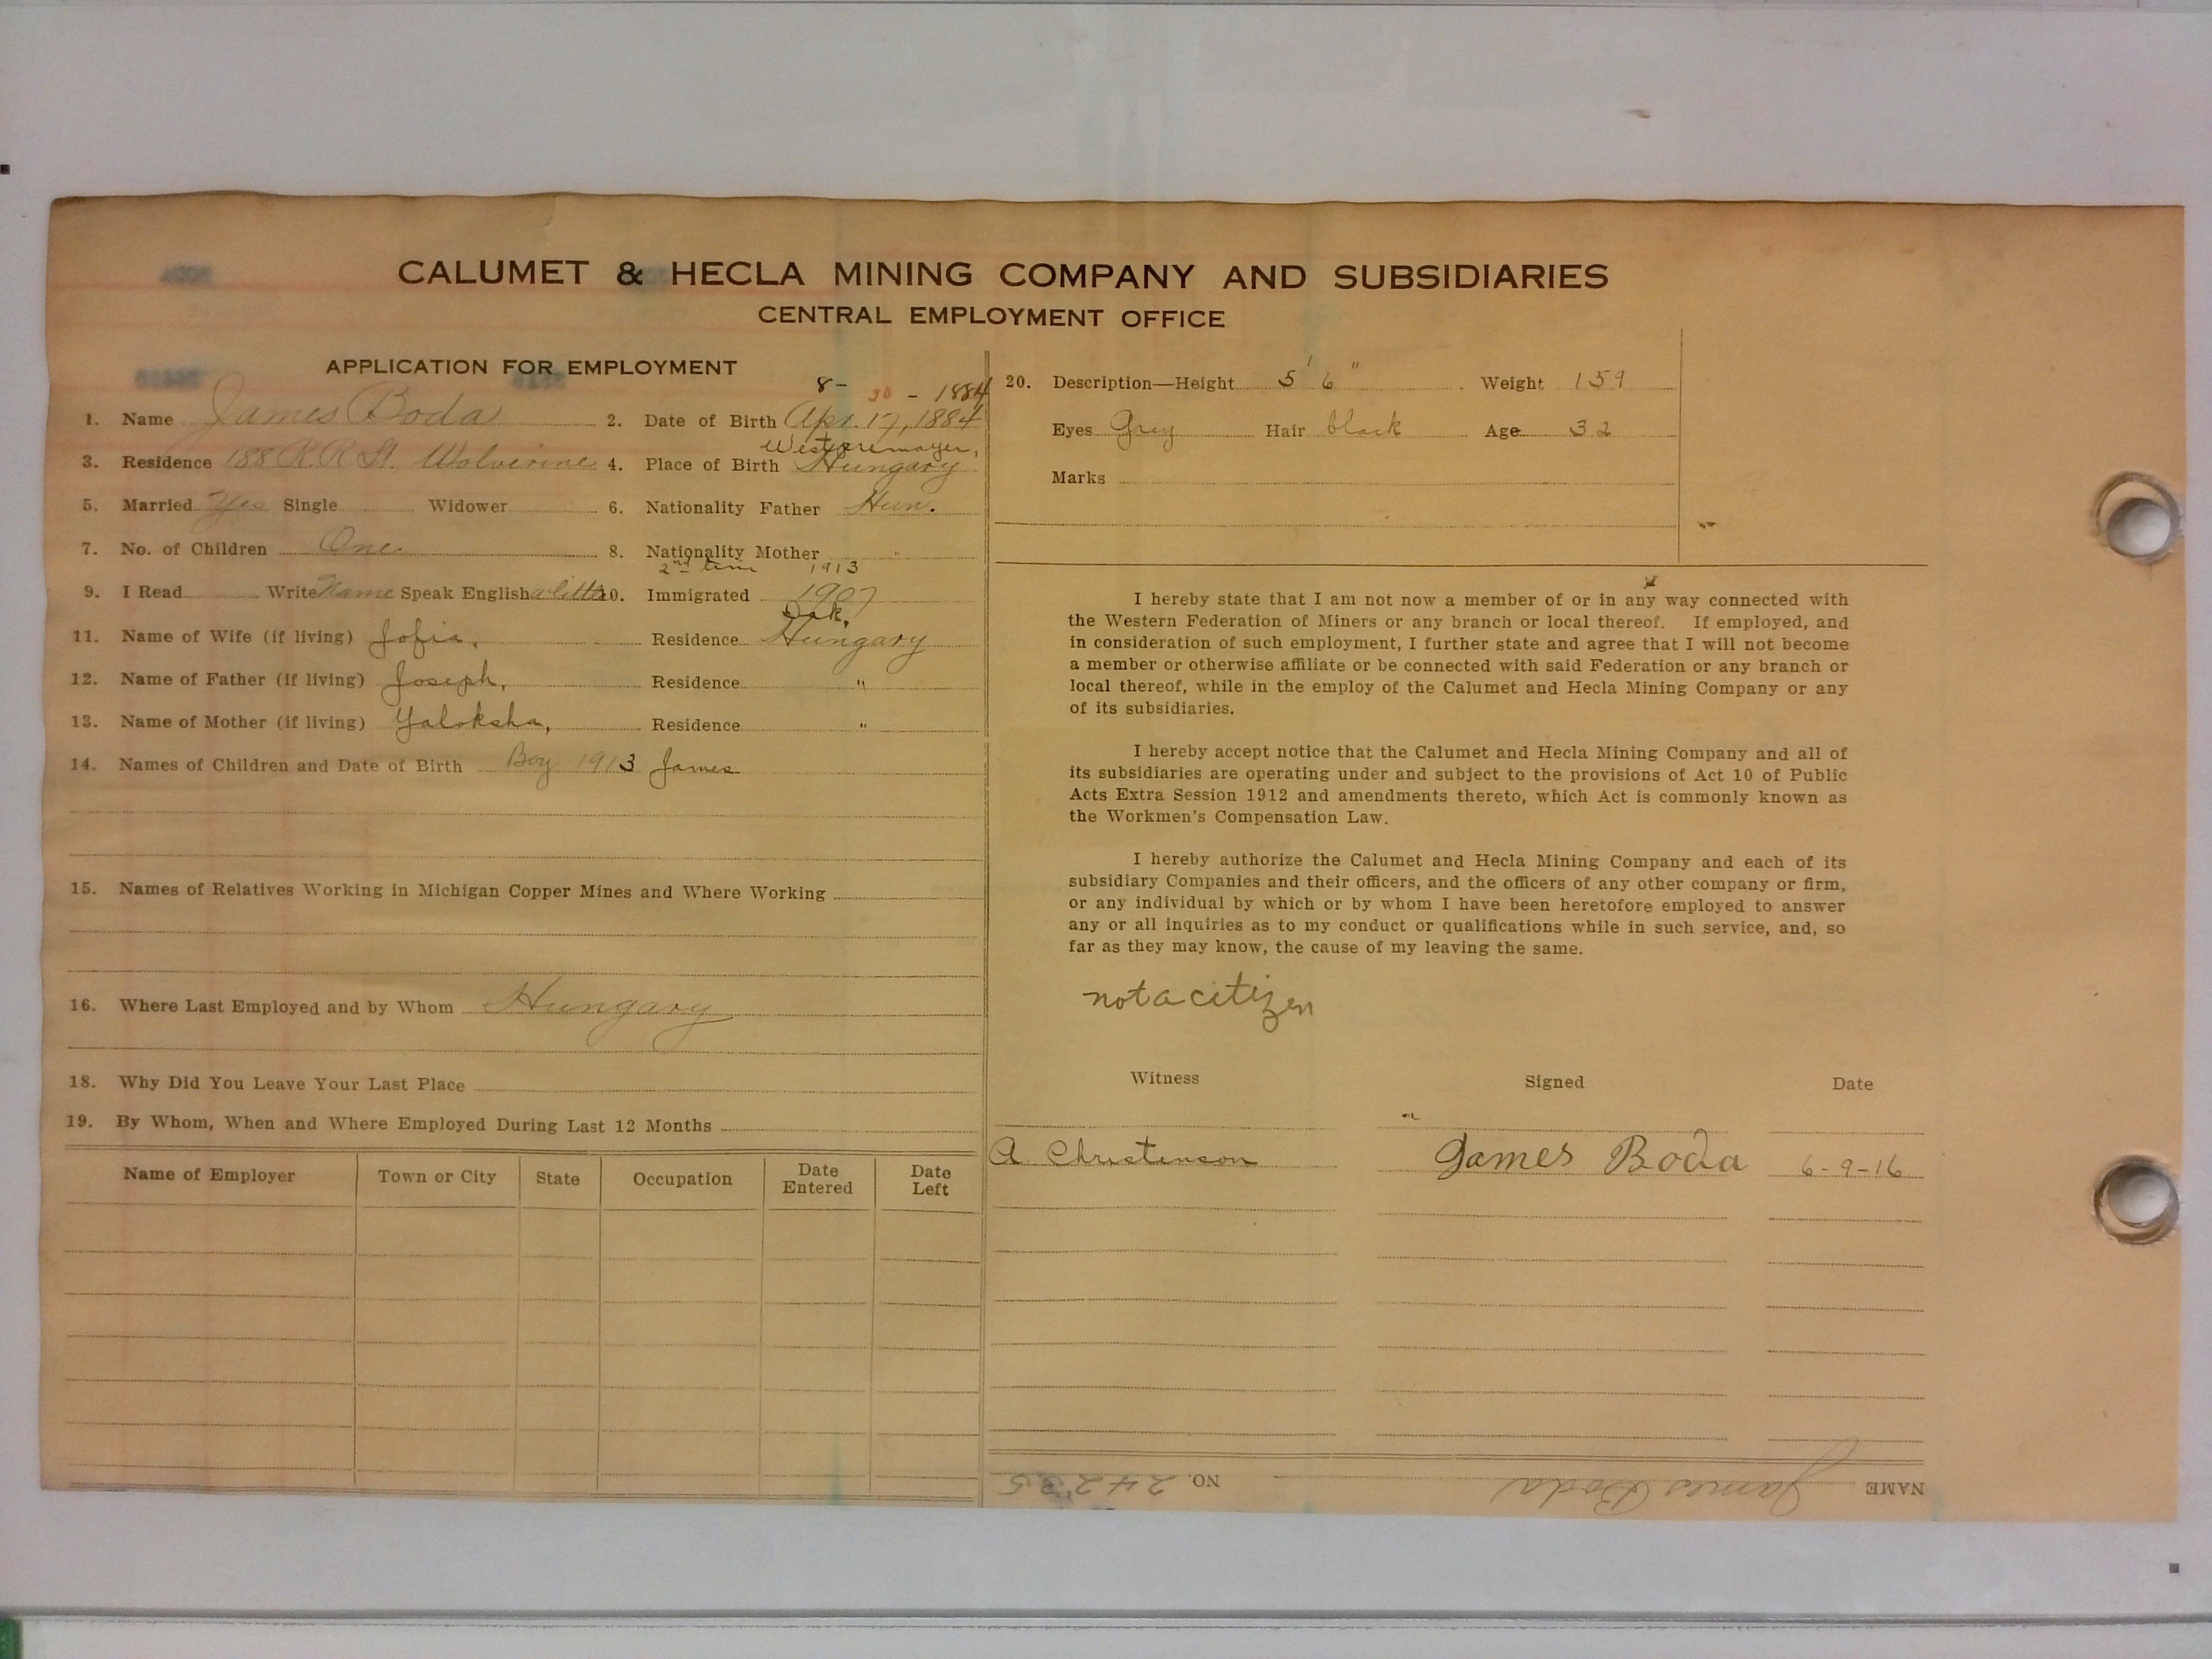 CALUMET & HECLA MINING COMPANY AND SUBSIDIARIES
CENTRAL EMPLOYMENT OFFICE
APPLICATION FOR EMPLOYMENT
8- 30 - 1884
1. Name James Boda 2. Date of Birth Apr. 17, 1884
3. Residence 188 R.R St. Wolverine 4. Place of Birth Hungary
5. Married Yes Single Widower 6. Nationality Father Hun.
7. No. of Children One 8. Nationality Mother "
2nd time 1913
9. I Read Write Name Speak English a little 10. Immigrated 1907
11. Name of Wife (if living) Sofia, Residence Hungary
12. Name of Father (if living) Joseph, Residence "
13. Name of Mother (if living) Yaloksha, Residence "
14. Names of Children and Date of Birth Boy 1913 James
15. Names of Relatives Working in Michigan Copper Mines and Where Working
16. Where Last Employed and by Whom Hungary
18. Why Did You Leave Your Last Place
19. By Whom, When and Where Employed During Last 12 Months
Name of Employer Town or City State Occupation Date Entered Date Left
20. Description—Height 5' 6" Weight 159
Eyes Grey Hair black Age 32
Marks
I hereby state that I am not now a member of or in any way connected with
the Western Federation of Miners or any branch or local thereof. If employed, and
in consideration of such employment, I further state and agree that I will not become
a member or otherwise affiliate or be connected with said Federation or any branch or
local thereof, while in the employ of the Calumet and Hecla Mining Company or any
of its subsidiaries.
I hereby accept notice that the Calumet and Hecla Mining Company and all of
its subsidiaries are operating under and subject to the provisions of Act 10 of Public
Acts Extra Session 1912 and amendments thereto, which Act is commonly known as
the Workmen's Compensation Law.
I hereby authorize the Calumet and Hecla Mining Company and each of its
subsidiary Companies and their officers, and the officers of any other company or firm,
or any individual by which or by whom I have been heretofore employed to answer
any or all inquiries as to my conduct or qualifications while in such service, and, so
far as they may know, the cause of my leaving the same.
not a citizen
Witness Signed Date
A Christenson James Boda 6-9-16
NAME James Boda NO. 24235